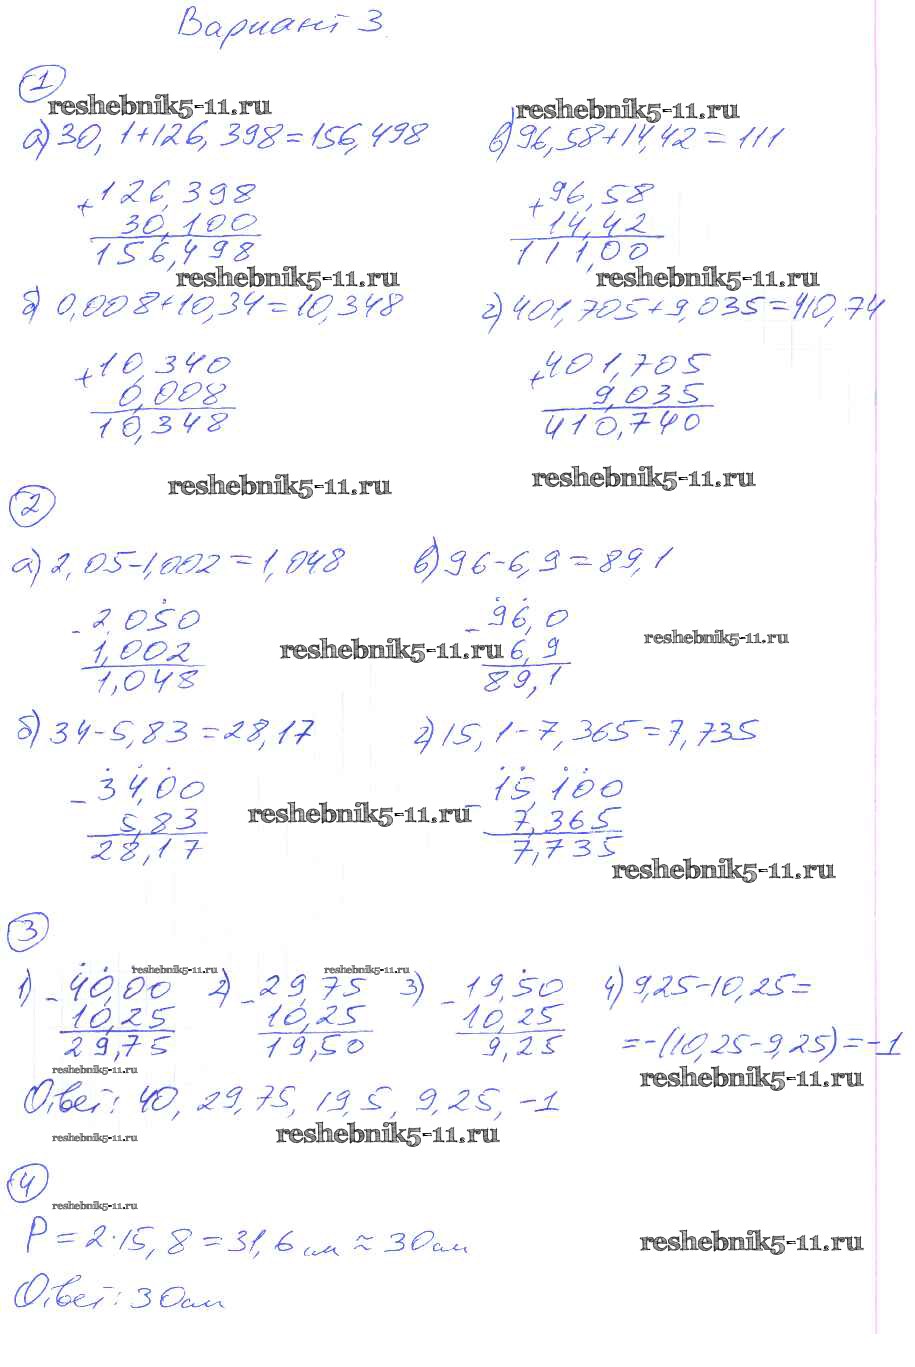 Вариант 3
1
reshebnik5-11.ru
reshebnik5-11.ru
а) 30,1+126,398=156,498
в) 96,58+14,42=111
+126,398
30,100
156,498
+96,58
14,42
111,00
reshebnik5-11.ru
reshebnik5-11.ru
б) 0,008+10,34=10,348
г) 401,705+9,035=410,74
+10,340
0,008
10,348
+401,705
9,035
410,740
reshebnik5-11.ru
reshebnik5-11.ru
2
а) 2,05-1,002=1,048
в) 96-6,9=89,1
-2,050
1,002
1,048
-96,0
6,9
89,1
reshebnik5-11.ru
reshebnik5-11.ru
б) 34-5,83=28,17
г) 15,1-7,365=7,735
-34,00
5,83
28,17
-15,100
7,365
7,735
reshebnik5-11.ru
reshebnik5-11.ru
3
reshebnik5-11.ru
reshebnik5-11.ru
1) -40,00
10,25
29,75
2) -29,75
10,25
19,50
3) -19,50
10,25
9,25
4) 9,25-10,25=
=-(10,25-9,25)=-1
reshebnik5-11.ru
reshebnik5-11.ru
Ответ: 40, 29,75, 19,5, 9,25, -1
reshebnik5-11.ru
reshebnik5-11.ru
4
reshebnik5-11.ru
P=2·15,8=31,6 см ≈ 30 см
reshebnik5-11.ru
Ответ: 30 см